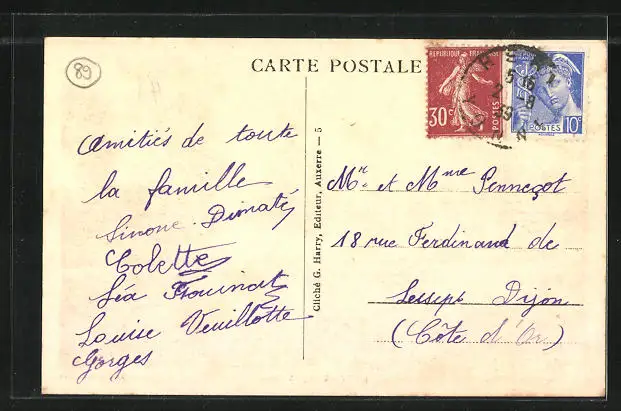 89
CARTE POSTALE
REPUBLIQUE FRANÇAISE
30c
POSTES
POSTES 10c
Amitiés de toute
la famille
Simone Dimaté
Colette
Léa Frouinat
Louise Veuillotte
Gorges
Cliché G. Harry, Editeur, Auxerre — 5
Mr et Mme Penneçot
18 rue Ferdinand de
Lesseps Dijon
(Côte d'Or)